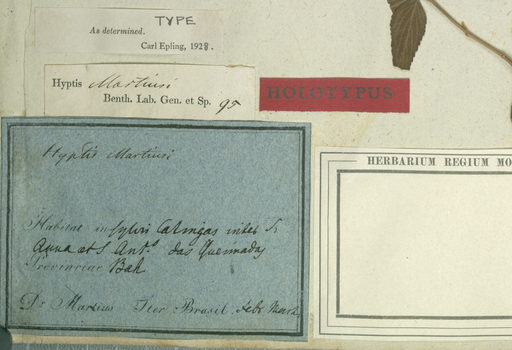 TYPE
As determined.
Carl Epling, 1928.
Hyptis Martiusi
Benth. Lab. Gen. et Sp. 95
HOLOTYPUS
Hyptis Martiusi
Habitat in sylvis Catingas inter S.
Anna et S. Antº das Queimadas
Provinciae Bah
Dr Martius Iter Brasil. Febr
HERBARIUM REGIUM MO